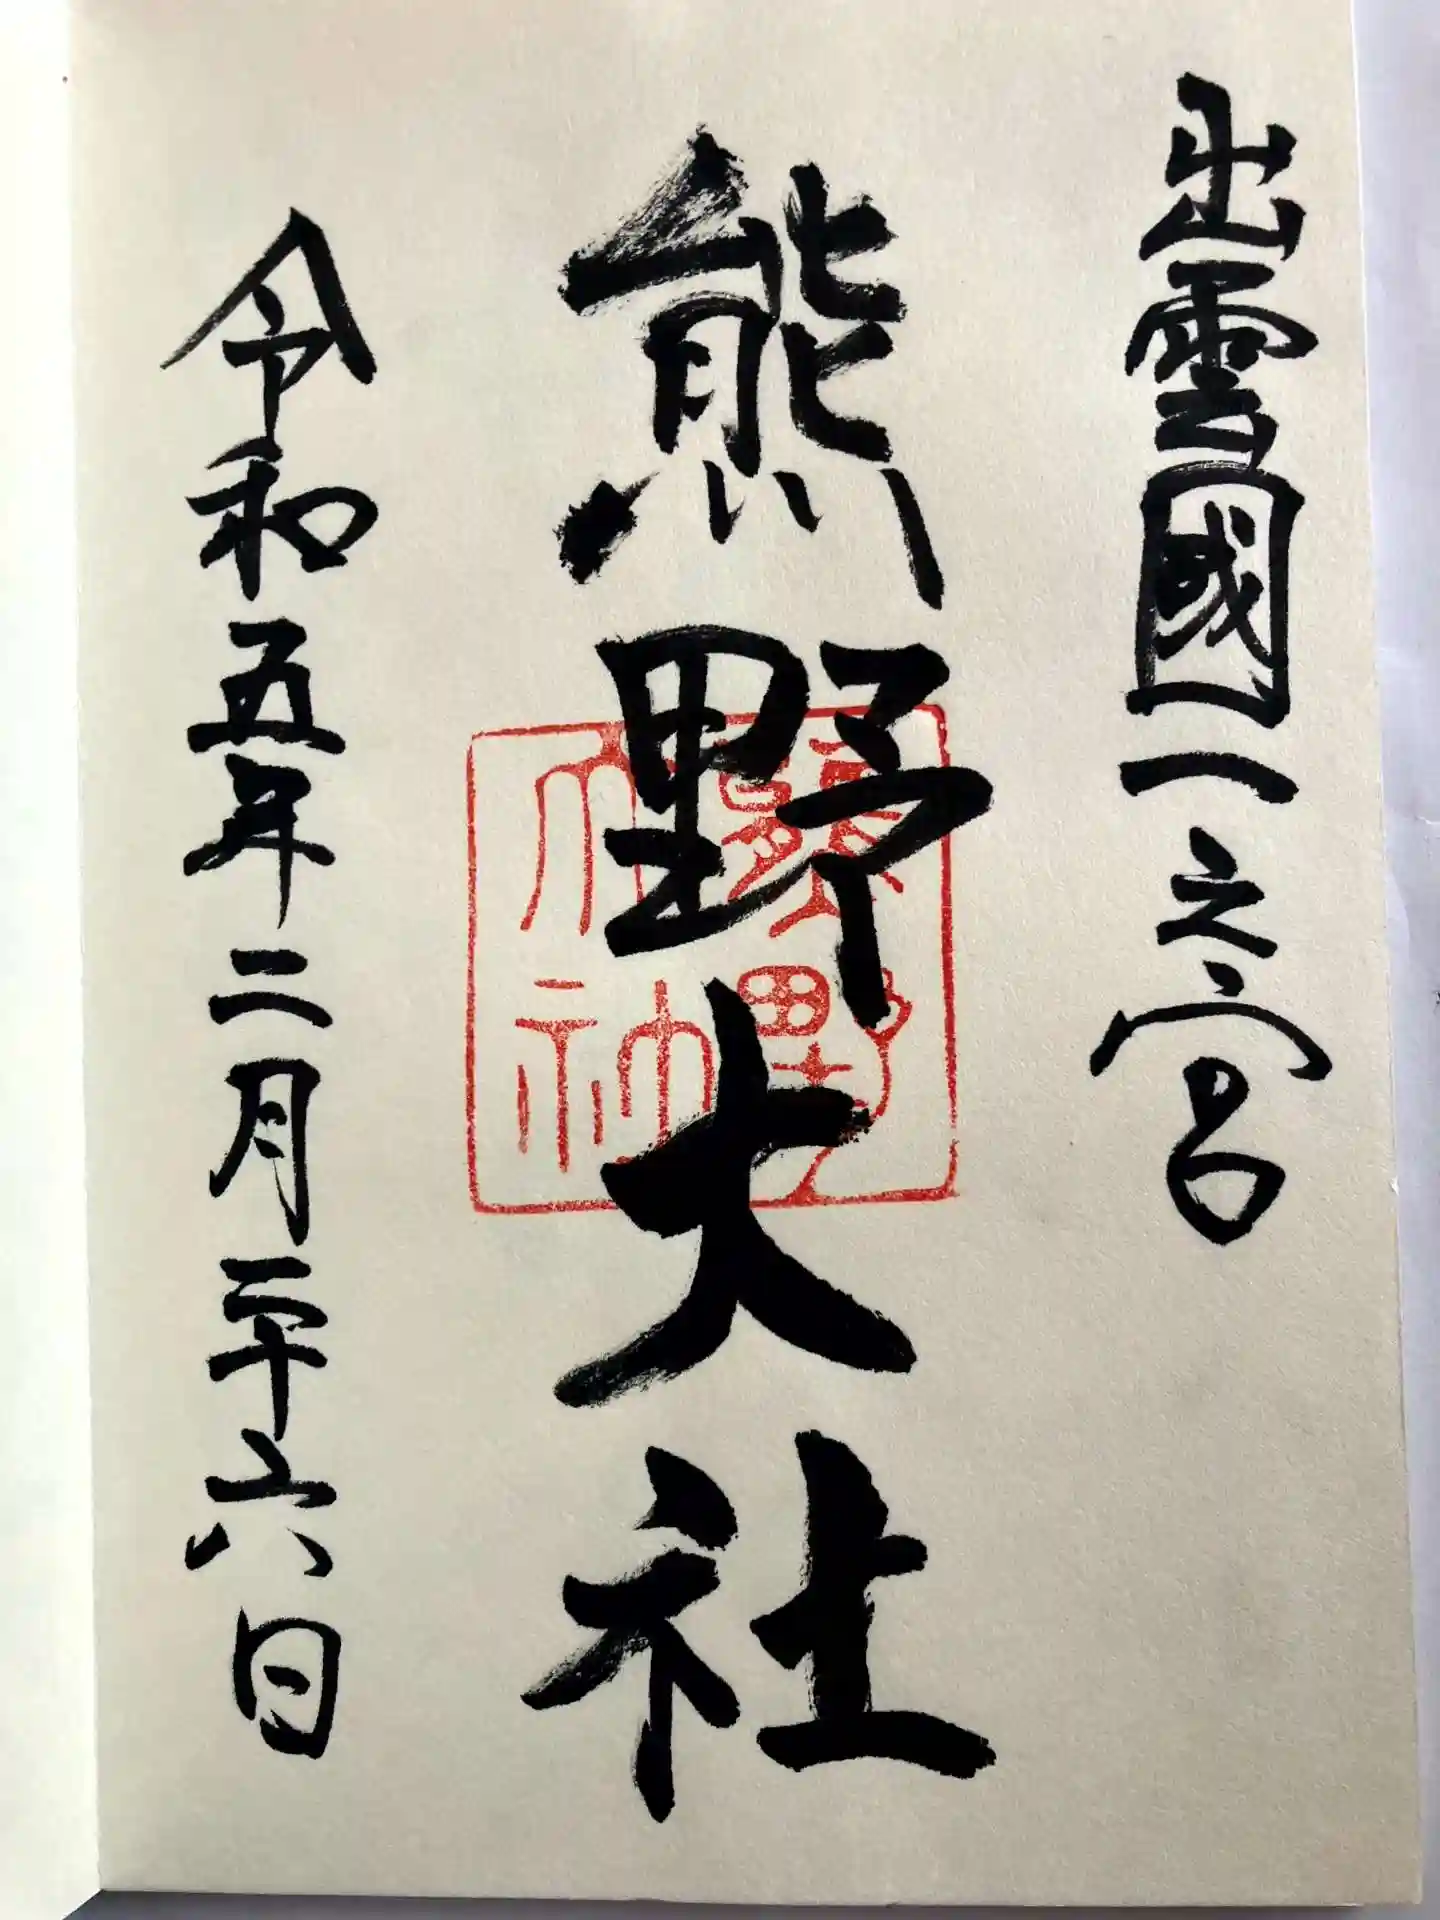 出雲國一之宮
熊野大社
熊野大社
令和五年二月二十六日